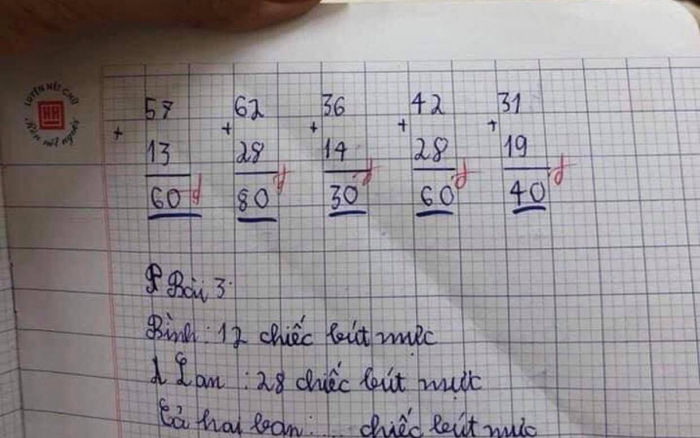 LUYỆN NÉT CHỮ
HH
Rèn nết người
57 62 36 42 31
+ + + + +
13 28 14 28 19
60 80 30 60 40
Bài 3:
Bình : 12 chiếc bút mực
Lan : 28 chiếc bút mực
Cả hai bạn : ... chiếc bút mực